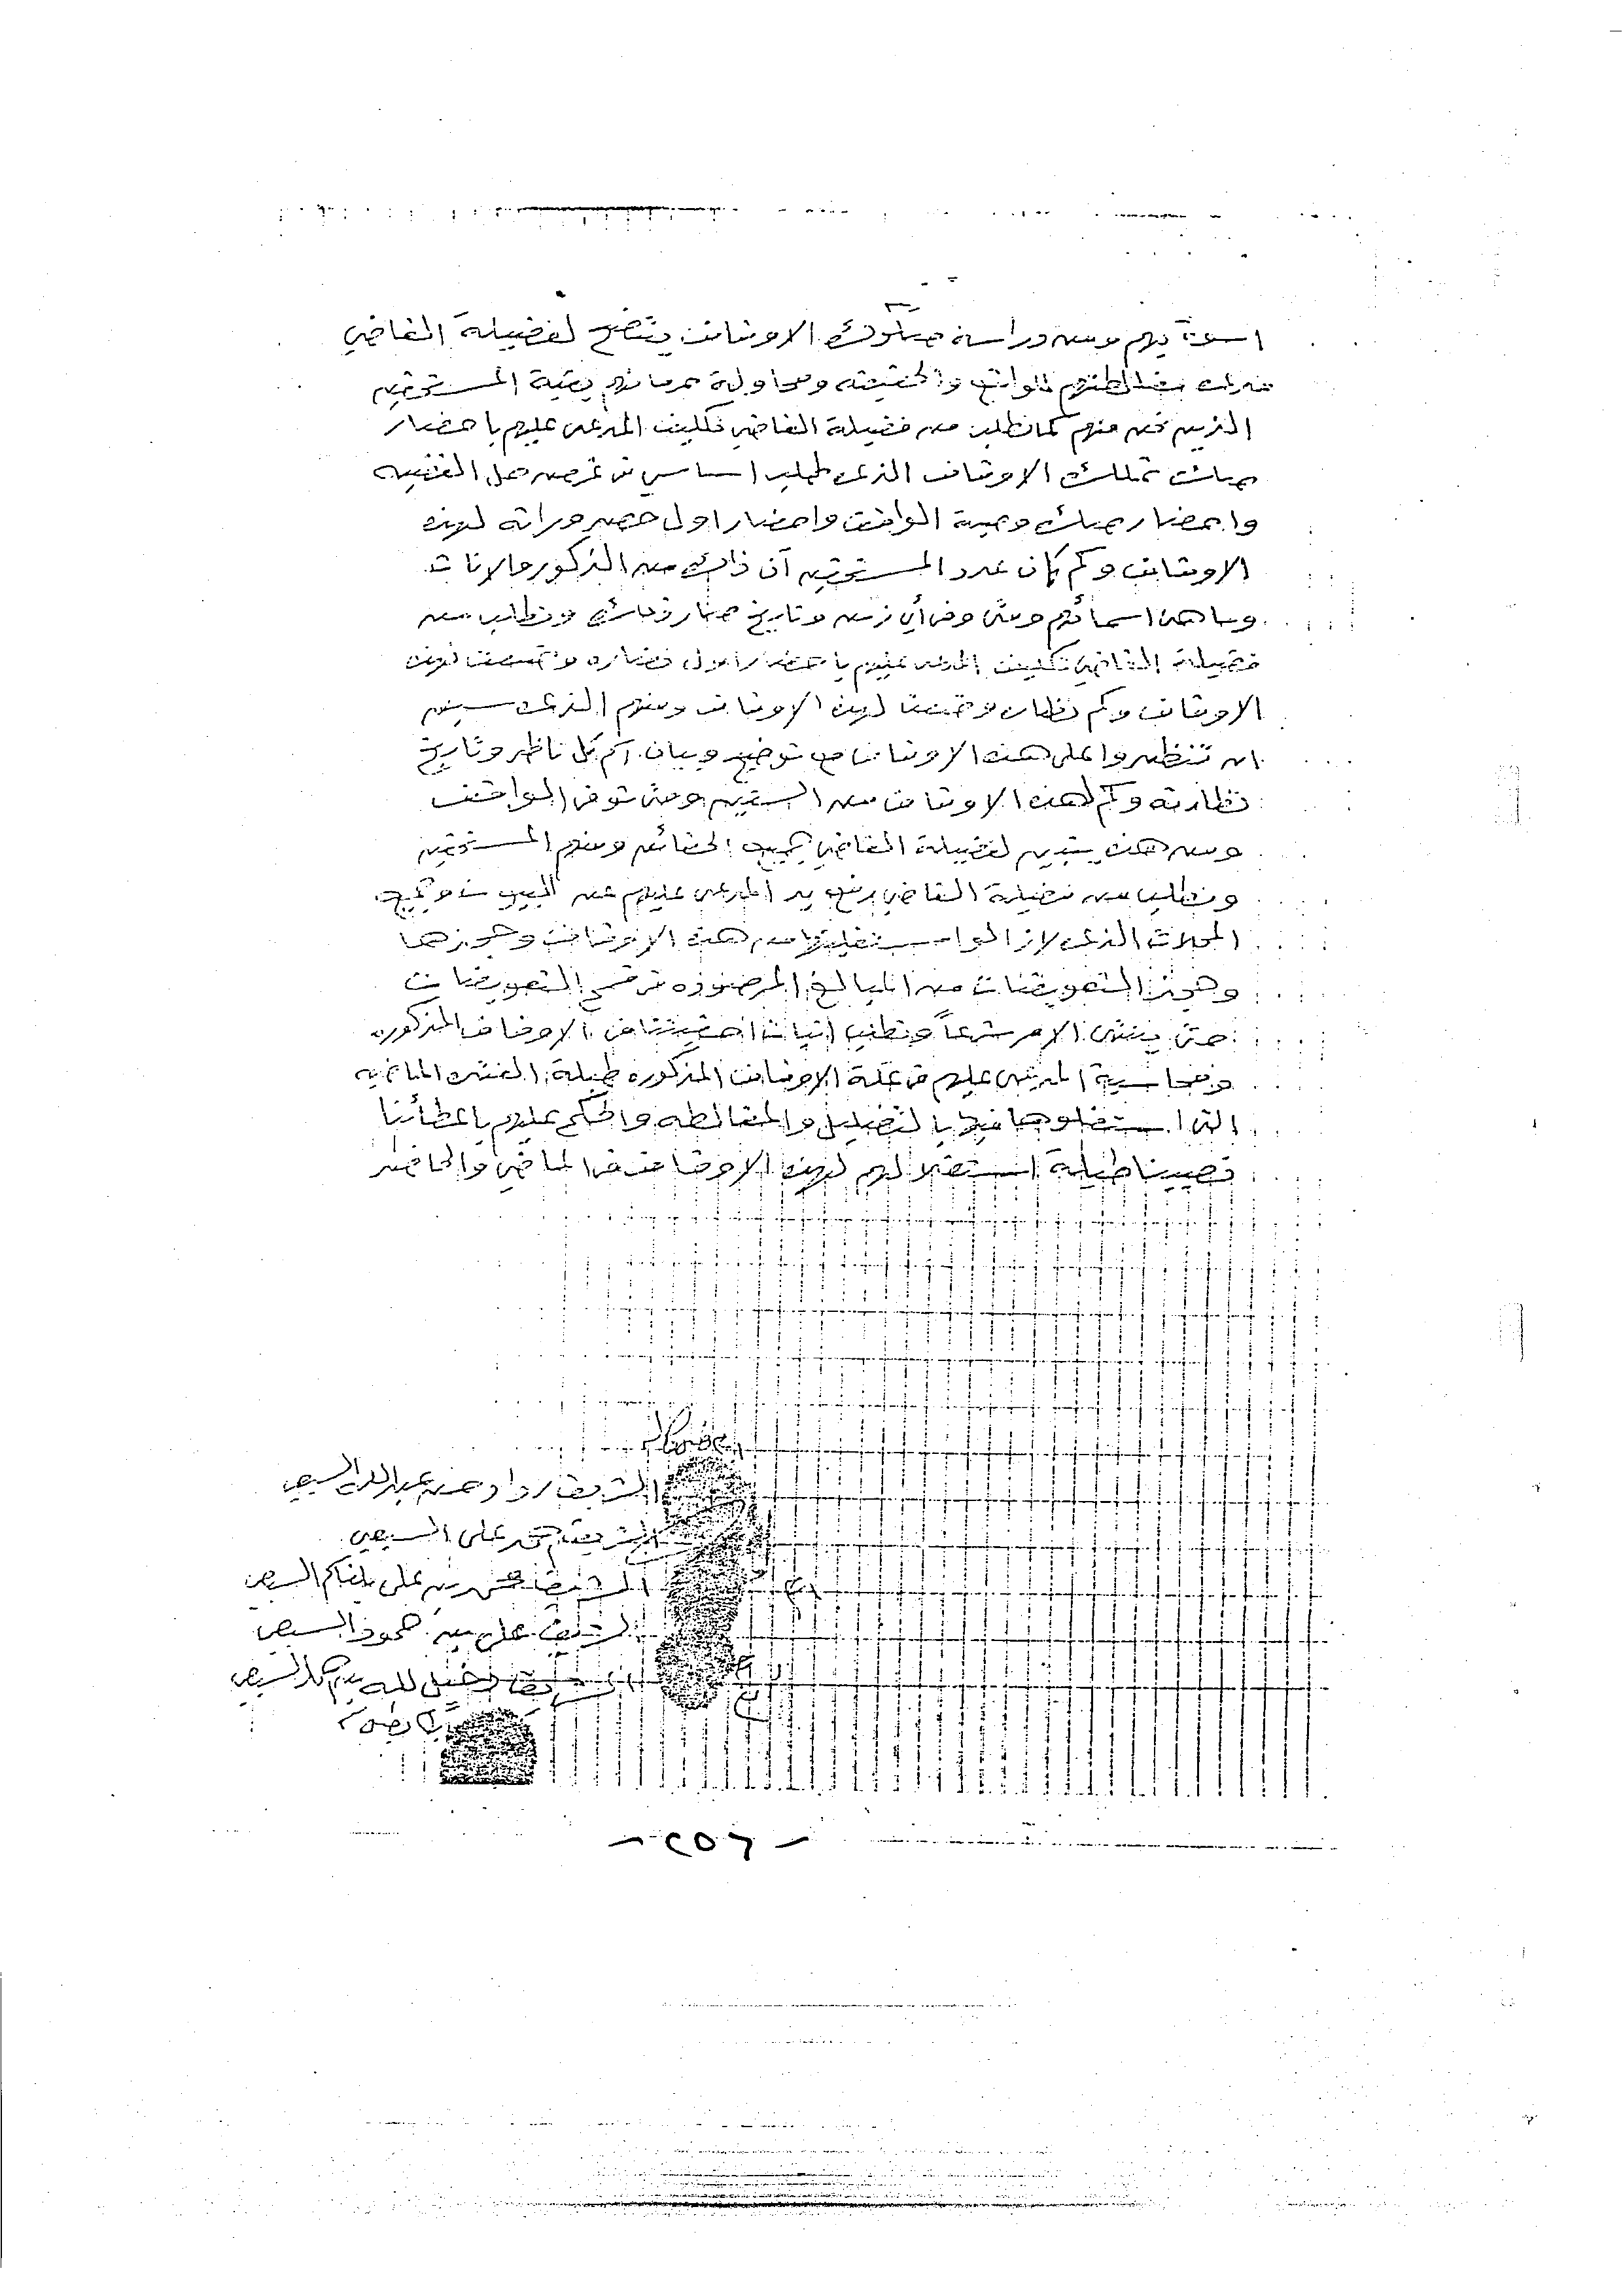 اسوة بهم ومن دراسة صكوك الاوقاف يتضح لفضيلة القاضي
مغالطتهم للواقع والحقيقه ومحاولة حرمانهم بقية المستحقين
الذين نحن منهم كما نطلب من فضيلة القاضي تكليف المدعى عليهم باحضار
صكوك تملك الاوقاف الذى طلب اساسي في حل القضيه
واحضار صك وصية الواقف واحضار اول حصر وراثه لهذه
الاوقاف وكم كان عدد المستحقين آن ذالك من الذكور والاناث
وما هى اسمائهم ومتى وفى أي زمن وتاريخ صار ذالك ونطلب من
فضيلة القاضي تكليف المدعى عليهم باحضار اول نضاره لهذه
الاوقاف وكم نظار لهذه الاوقاف ومنهم الذى سبق
ان تنظروا على هذه الاوقاف مع توضيح وبيان اسم كل ناظر وتاريخ
نظارته وكم لهذه الاوقاف من السنين ومتى توفى الواقف
ومن هذه يتبين لفضيلة القاضي جميع الحقائق ومنهم المستحقين
ونطلب من فضيلة القاضي رفع يد المدعى عليهم عن البيوت وجميع
المحلات الذى لازالوا مستغلينها من هذه الاوقاف وحجزها
وحجز التعويضات من المبالغ المرصوده في قسم التعويضات
حتى ينتهى الامر شرعاً ونطلب اثبات احقيتنا فى الاوقاف المذكوره
ومحاسبة المدعى عليهم في غلة الاوقاف المذكوره طيلة الفتره الماضيه
التى استغلوها فيها بالتضليل والمغالطه والحكم عليهم باعطائنا
نصيبنا طيلة استغلالهم لهذه الاوقاف فى الماضي والحاضر
الشريف داود بن عبدالله
الشريف على
الشريف حسن بن على بلقاسم
الشريف على بن حمود
الشريف دخيل الله بن
- ٢٥٦ -